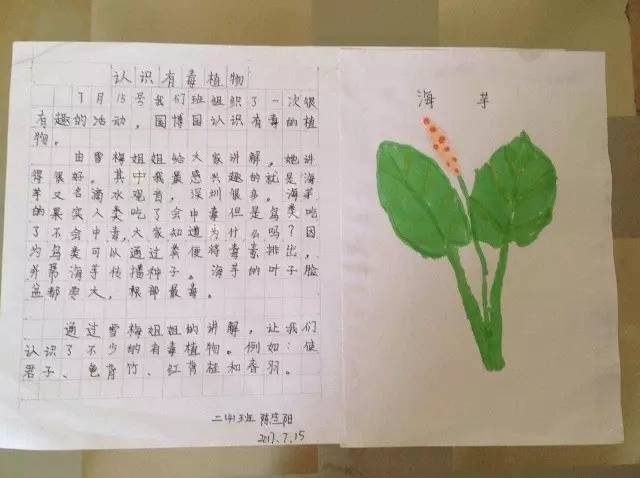 认识有毒植物
7月15号我们班组织了一次很
有趣的活动，国博园认识有毒的植
物。
由雪梅姐姐给大家讲解，她讲
得很好。其中我最感兴趣的就是海
芋又名滴水观音，深圳很多。海芋
的果实人类吃了会中毒但是鸟类吃
了不会中毒，大家知道为什么吗？因
为鸟类可以通过粪便将毒素排出，
并帮海芋传播种子。海芋的叶子脸
盆都要大，根部最毒。
通过雪梅姐姐的讲解，让我们
认识了不少的有毒植物。例如：使
君子、龟背竹、红背桂和春羽。
二(4)班 陈 阳
2017.7.15
海 芋